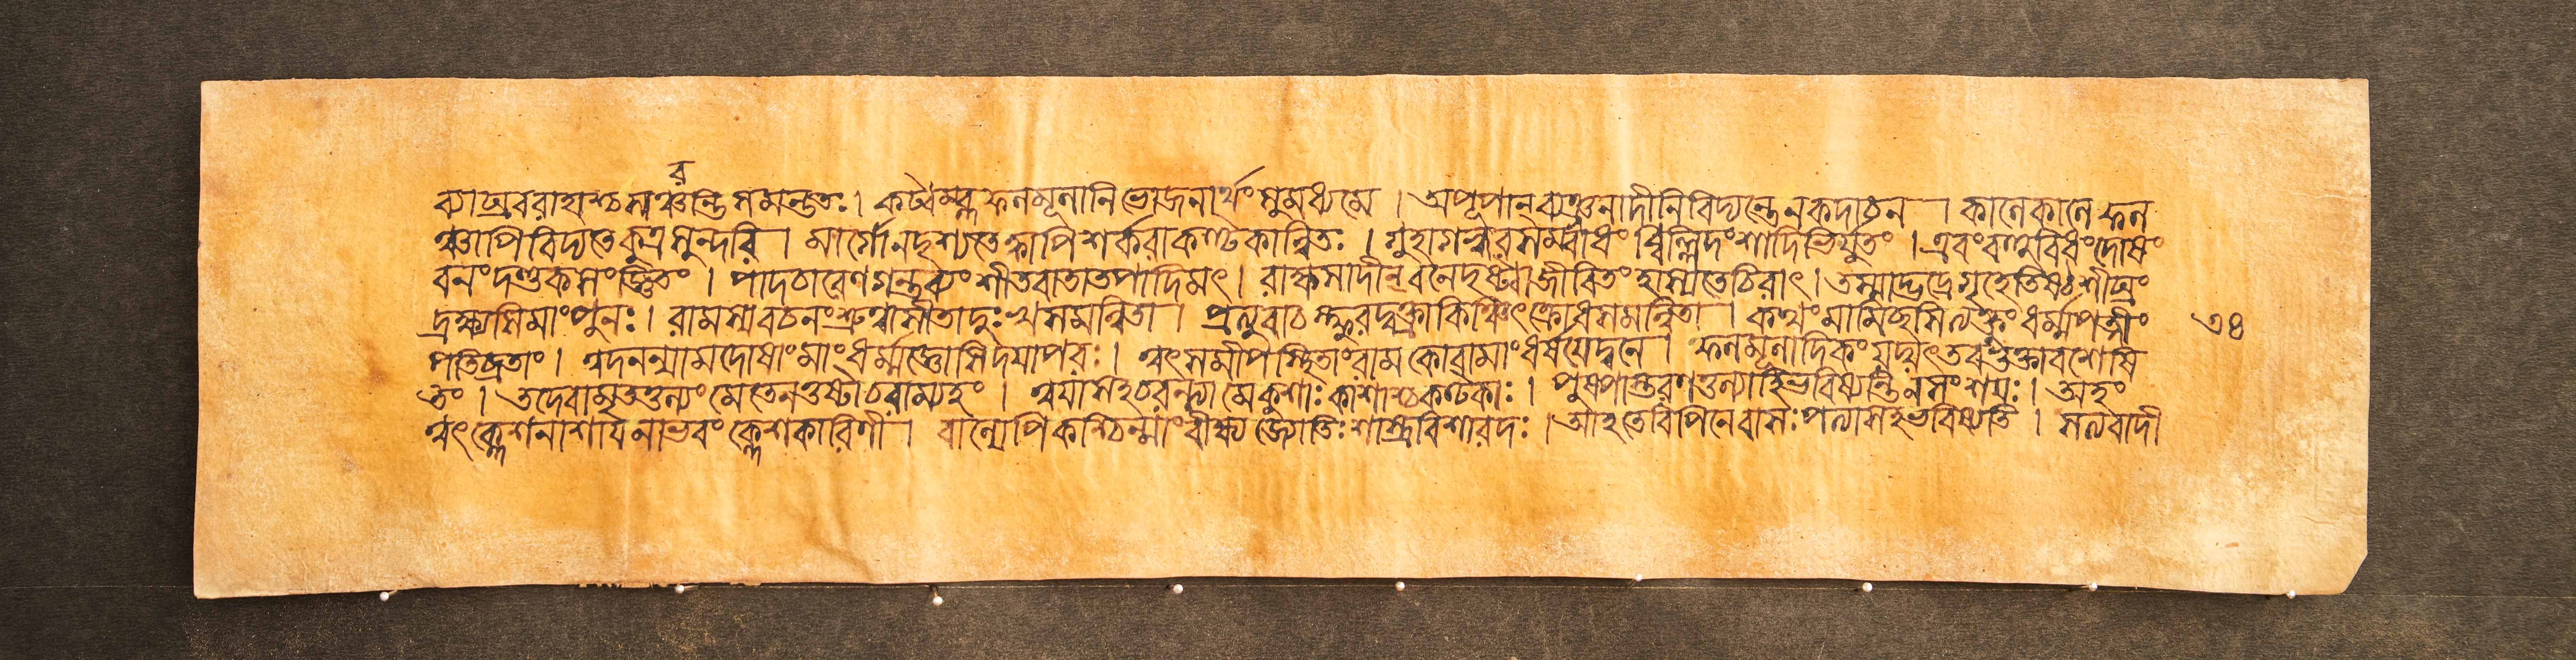 ৰ
ব্যাঘ্ৰবৰাহাশ্চসঞ্চান্তিসমন্ততঃ। কট্বম্লফলমূলানিভোজনাৰ্থংসুমধ্যমে । অপূপানব্যঞ্জনাদীনিবিদ্যন্তেনকদাচন । কালেকালেফল
ঞ্চাপিবিদ্যতেকুত্ৰসুন্দৰি । মাৰ্গোনদৃশ্যতেক্বাপিশৰ্কৰাকণ্টকান্বিতঃ । গুহাগহ্বৰসম্বাধং ঝিল্লিদংশাদিভিৰ্যুতং । এবংবহুবিধংদোষং
বনংদণ্ডকসংজ্ঞিতং । পাদচাৰেণগন্তব্যংশীতবাতাতপাদিমৎ। ৰাক্ষসাদীন্বনেদৃষ্ট্বাজীবিতংহাস্যসেচিৰাৎ। তস্মাদ্ভদ্ৰেগৃহেতিষ্ঠশীঘ্ৰং
দ্ৰক্ষ্যসিমাংপুনঃ। ৰামস্যবচনংশ্ৰুত্বাসীতাদুঃখসমন্বিতা । প্ৰত্যুবাচস্ফুৰদ্বক্ত্ৰাকিঞ্চিৎক্ৰোধসমন্বিতা । কথংমামিচ্ছসিত্যক্তুংধৰ্ম্মপত্নীং ৩৪
পতিব্ৰতাং। ত্বদনন্যামদোষাংমাংধৰ্ম্মজ্ঞোসিদয়াপৰঃ। ত্বৎসমীপেস্থিতাংৰামকোবামাংধৰ্ষয়েদ্বনে। ফলমূলাদিকংযদ্যৎতবভুক্তাবশেষি
তং। তদেবামৃততুল্যংমেতেনতুষ্টাচৰাম্যহং। ত্বয়াসহচৰন্ত্যামেকুশাঃকাশাশ্চকণ্টকাঃ। পুষ্পাস্তৰণতুল্যাহিভবিষ্যন্তিনসংশয়ঃ। অহং
ত্বৎক্লেশনাশায়নাভবংক্লেশকাৰিণী। বাল্যেপিকশ্চিন্মাংবীক্ষ্যজ্যোতিঃশাস্ত্ৰবিশাৰদঃ। আহতেবিপিনেবাসঃপত্যাসহভবিষ্যতি । সত্যবাদী